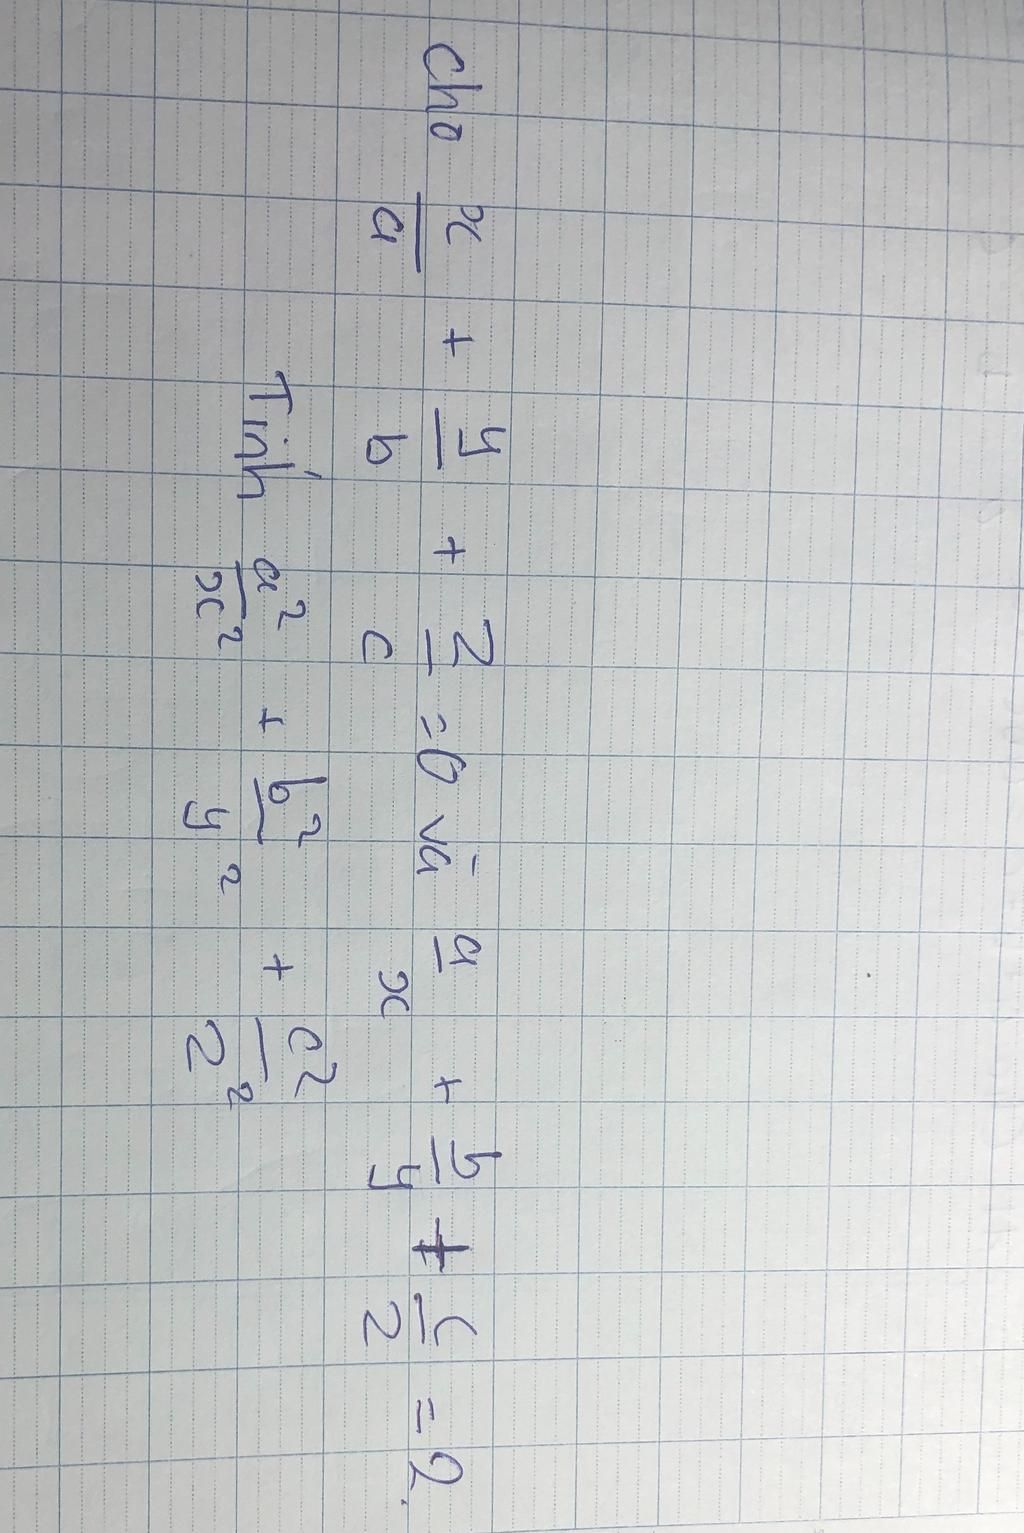 Cho x/a + y/b + z/c = 0 và a/x + b/y + c/z = 2.
Tính a²/x² + b²/y² + c²/z²